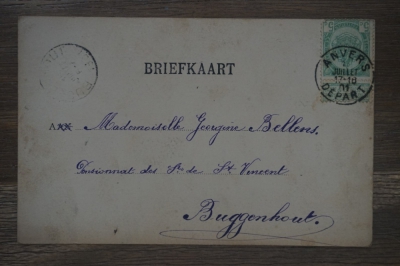 BRIEFKAART
ANVERS
JUILLET
DÉPART
A Mademoiselle Georgine Bellens,
Pensionnat des Srs de St Vincent
Buggenhout.